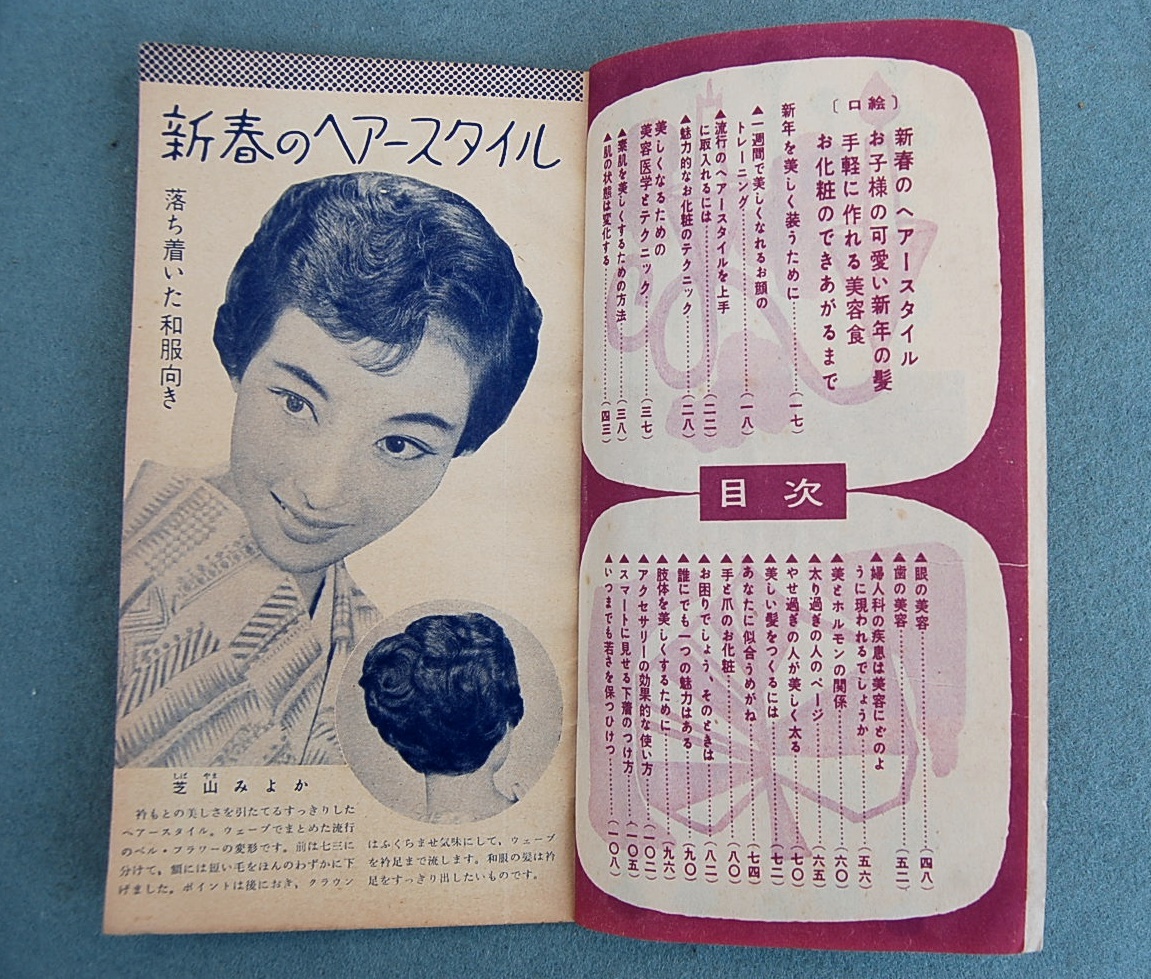 新春のヘアースタイル
落ち着いた和服向き
しば やま
芝山みよか
衿もとの美しさを引たてるすっきりした
ヘアースタイル。ウェーブでまとめた流行
のベル・フラワーの変形です。前は七三に
分けて、額には短い毛をほんのわずかに下
げました。ポイントは後におき、クラウン
はふくらませ気味にして、ウェーブ
を衿足まで流します。和服の髪は衿
足をすっきり出したいものです。
〔口絵〕
新春のヘアースタイル
お子様の可愛い新年の髪
手軽に作れる美容食
お化粧のできあがるまで
新年を美しく装うために…………(一七)
▲一週間で美しくなれるお顔の
トレーニング…………(一八)
▲流行のヘアースタイルを上手
に取入れるには…………(二二)
▲魅力的なお化粧のテクニック…………(二八)
美しくなるための
美容医学とテクニック…………(三七)
▲素肌を美しくするための方法…………(三八)
▲肌の状態は変化する…………(四三)
目次
▲眼の美容…………(四八)
▲歯の美容…………(五二)
▲婦人科の疾患は美容にどのよ
うに現われるでしょうか…………(五六)
▲美とホルモンの関係…………(六〇)
▲太り過ぎの人のページ…………(六五)
▲やせ過ぎの人が美しく太る…………(七〇)
▲美しい髪をつくるには…………(七二)
▲あなたに似合うめがね…………(七四)
▲手と爪のお化粧…………(八〇)
▲お困りでしょう、そのときは…………(八二)
▲誰にでも一つの魅力はある…………(九〇)
▲肢体を美しくするために…………(九六)
▲アクセサリーの効果的な使い方…………(一〇二)
▲スマートに見せる下着のつけ方…………(一〇五)
▲いつまでも若さを保つひけつ…………(一〇八)